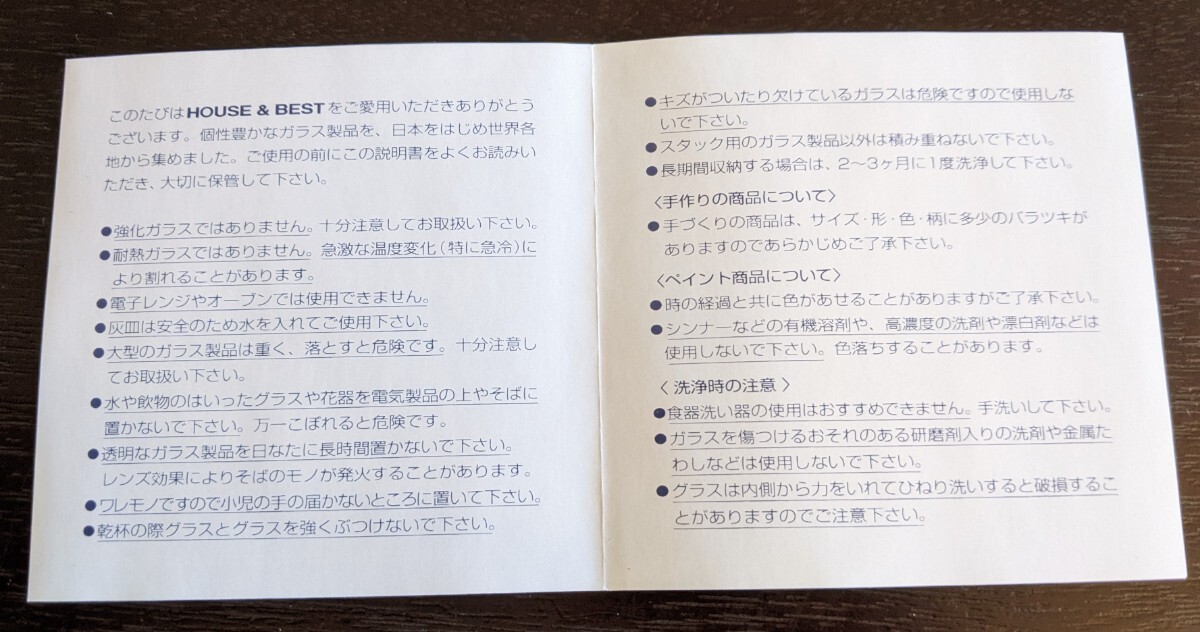 このたびはHOUSE & BESTをご愛用いただきありがとう
ございます。個性豊かなガラス製品を、日本をはじめ世界各
地から集めました。ご使用の前にこの説明書をよくお読みい
ただき、大切に保管して下さい。
●強化ガラスではありません。十分注意してお取扱い下さい。
●耐熱ガラスではありません。急激な温度変化(特に急冷)に
より割れることがあります。
●電子レンジやオーブンでは使用できません。
●灰皿は安全のため水を入れてご使用下さい。
●大型のガラス製品は重く、落とすと危険です。十分注意し
てお取扱い下さい。
●水や飲物のはいったグラスや花器を電気製品の上やそばに
置かないで下さい。万一こぼれると危険です。
●透明なガラス製品を日なたに長時間置かないで下さい。
レンズ効果によりそばのモノが発火することがあります。
●ワレモノですので小児の手の届かないところに置いて下さい。
●乾杯の際グラスとグラスを強くぶつけないで下さい。
●キズがついたり欠けているガラスは危険ですので使用しな
いで下さい。
●スタック用のガラス製品以外は積み重ねないで下さい。
●長期間収納する場合は、2〜3ヶ月に1度洗浄して下さい。
〈手作りの商品について〉
●手づくりの商品は、サイズ・形・色・柄に多少のバラツキが
ありますのであらかじめご了承下さい。
〈ペイント商品について〉
●時の経過と共に色があせることがありますがご了承下さい。
●シンナーなどの有機溶剤や、高濃度の洗剤や漂白剤などは
使用しないで下さい。色落ちすることがあります。
〈 洗浄時の注意 〉
●食器洗い器の使用はおすすめできません。手洗いして下さい。
●ガラスを傷つけるおそれのある研磨剤入りの洗剤や金属た
わしなどは使用しないで下さい。
●グラスは内側から力をいれてひねり洗いすると破損するこ
とがありますのでご注意下さい。